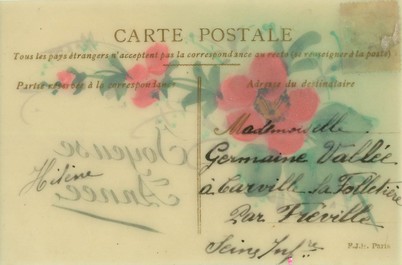 CARTE POSTALE
Tous les pays étrangers n'acceptent pas la correspondance au recto (se renseigner à la poste)
Partie réservée à la correspondance
Adresse du destinataire
Joyeuse
Année
Hélène
Mademoiselle
Germaine Vallée
à Carville la Folletière
Par Fréville
Seine Infre
P.J.G. Paris